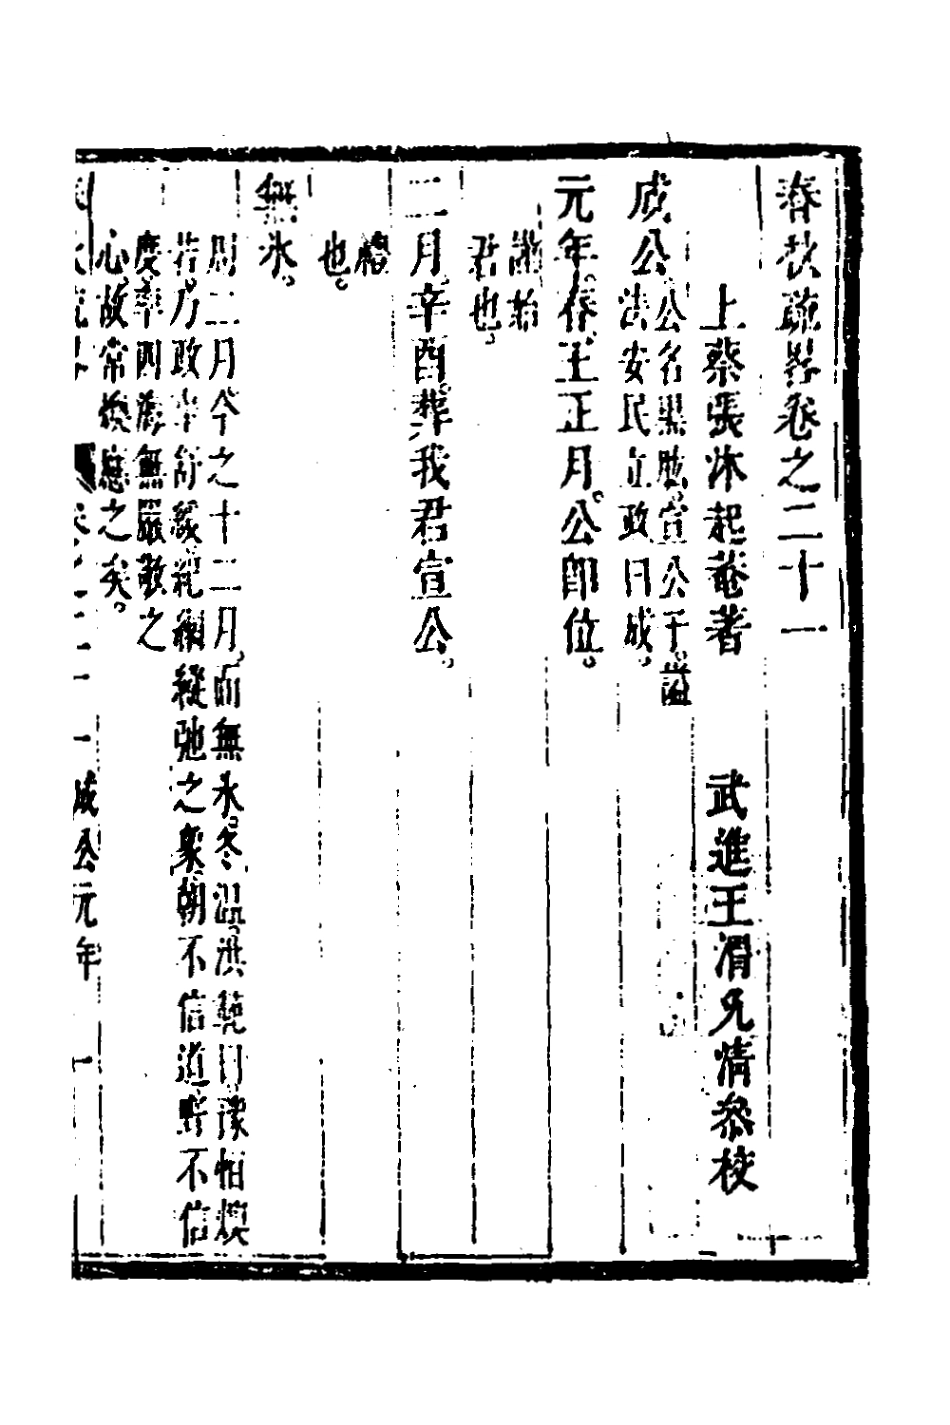 春秋疏畧卷之二十一
上蔡張沐起菴著　武進王渭兄清參校
成公
公名黑肱。宣公子。謚
法安民立政曰成。
元年。春。王正月。公即位。
謹始
君也。
二月。辛酉。葬我君宣公。
禮
也。
無冰。
周二月今之十二月。而無冰。冬溫。洪範曰豫恒燠
若。乃政事舒緩。紀綱縱弛之象。朝不信道。野不信
度。率四海無嚴敬之
心。故常燠應之矣。
卷之二十一　成公元年　一